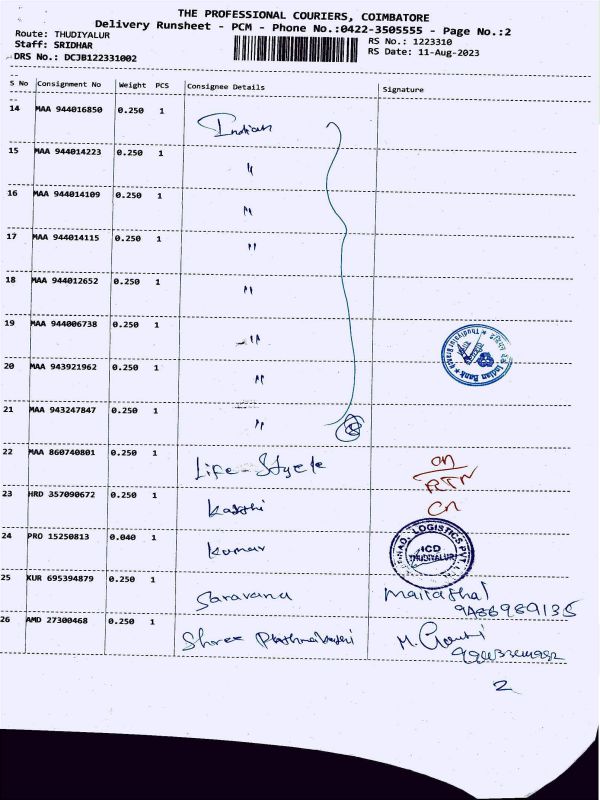 THE PROFESSIONAL COURIERS, COIMBATORE
Delivery Runsheet - PCM - Phone No.:0422-3505555 - Page No.:2
Route: THUDIYALUR
RS No.: 1223310
Staff: SRIDHAR
RS Date: 11-Aug-2023
DRS No.: DCJB122331002
S No Consignment No Weight PCS Consignee Details Signature
14 MAA 944016850 0.250 1 Indian
15 MAA 944014223 0.250 1 "
16 MAA 944014109 0.250 1 "
17 MAA 944014115 0.250 1 "
18 MAA 944012652 0.250 1 "
19 MAA 944006738 0.250 1 "
Indian Bank
20 MAA 943921962 0.250 1 "
21 MAA 943247847 0.250 1 "
22 MAA 860740801 0.250 1 Life-Style
RTN
23 HRD 357090672 0.250 1
24 PRO 15250813 0.040 1 Kumar
LOGISTICS PVT. LTD
ICD
THUDIYALUR
25 KUR 695394879 0.250 1 Saravana
26 AMD 27300468 0.250 1 Shree
2